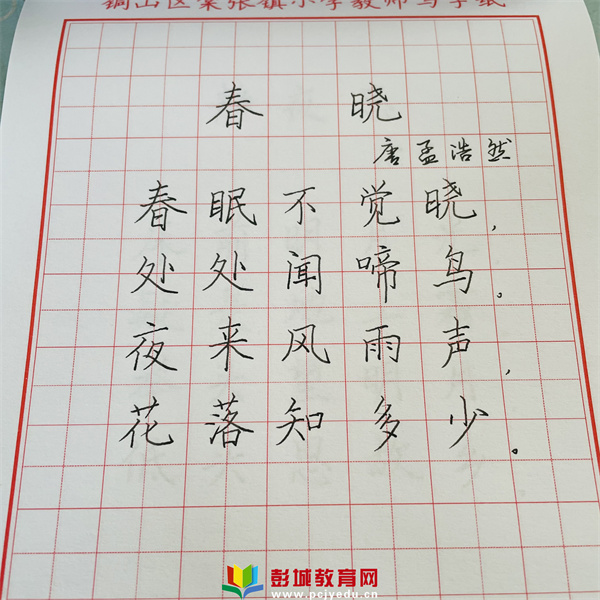 铜山区棠张镇小学教师写字纸
春 晓
唐 孟浩然
春眠不觉晓，
处处闻啼鸟。
夜来风雨声，
花落知多少。
彭城教育网
www.pcjyedu.cn